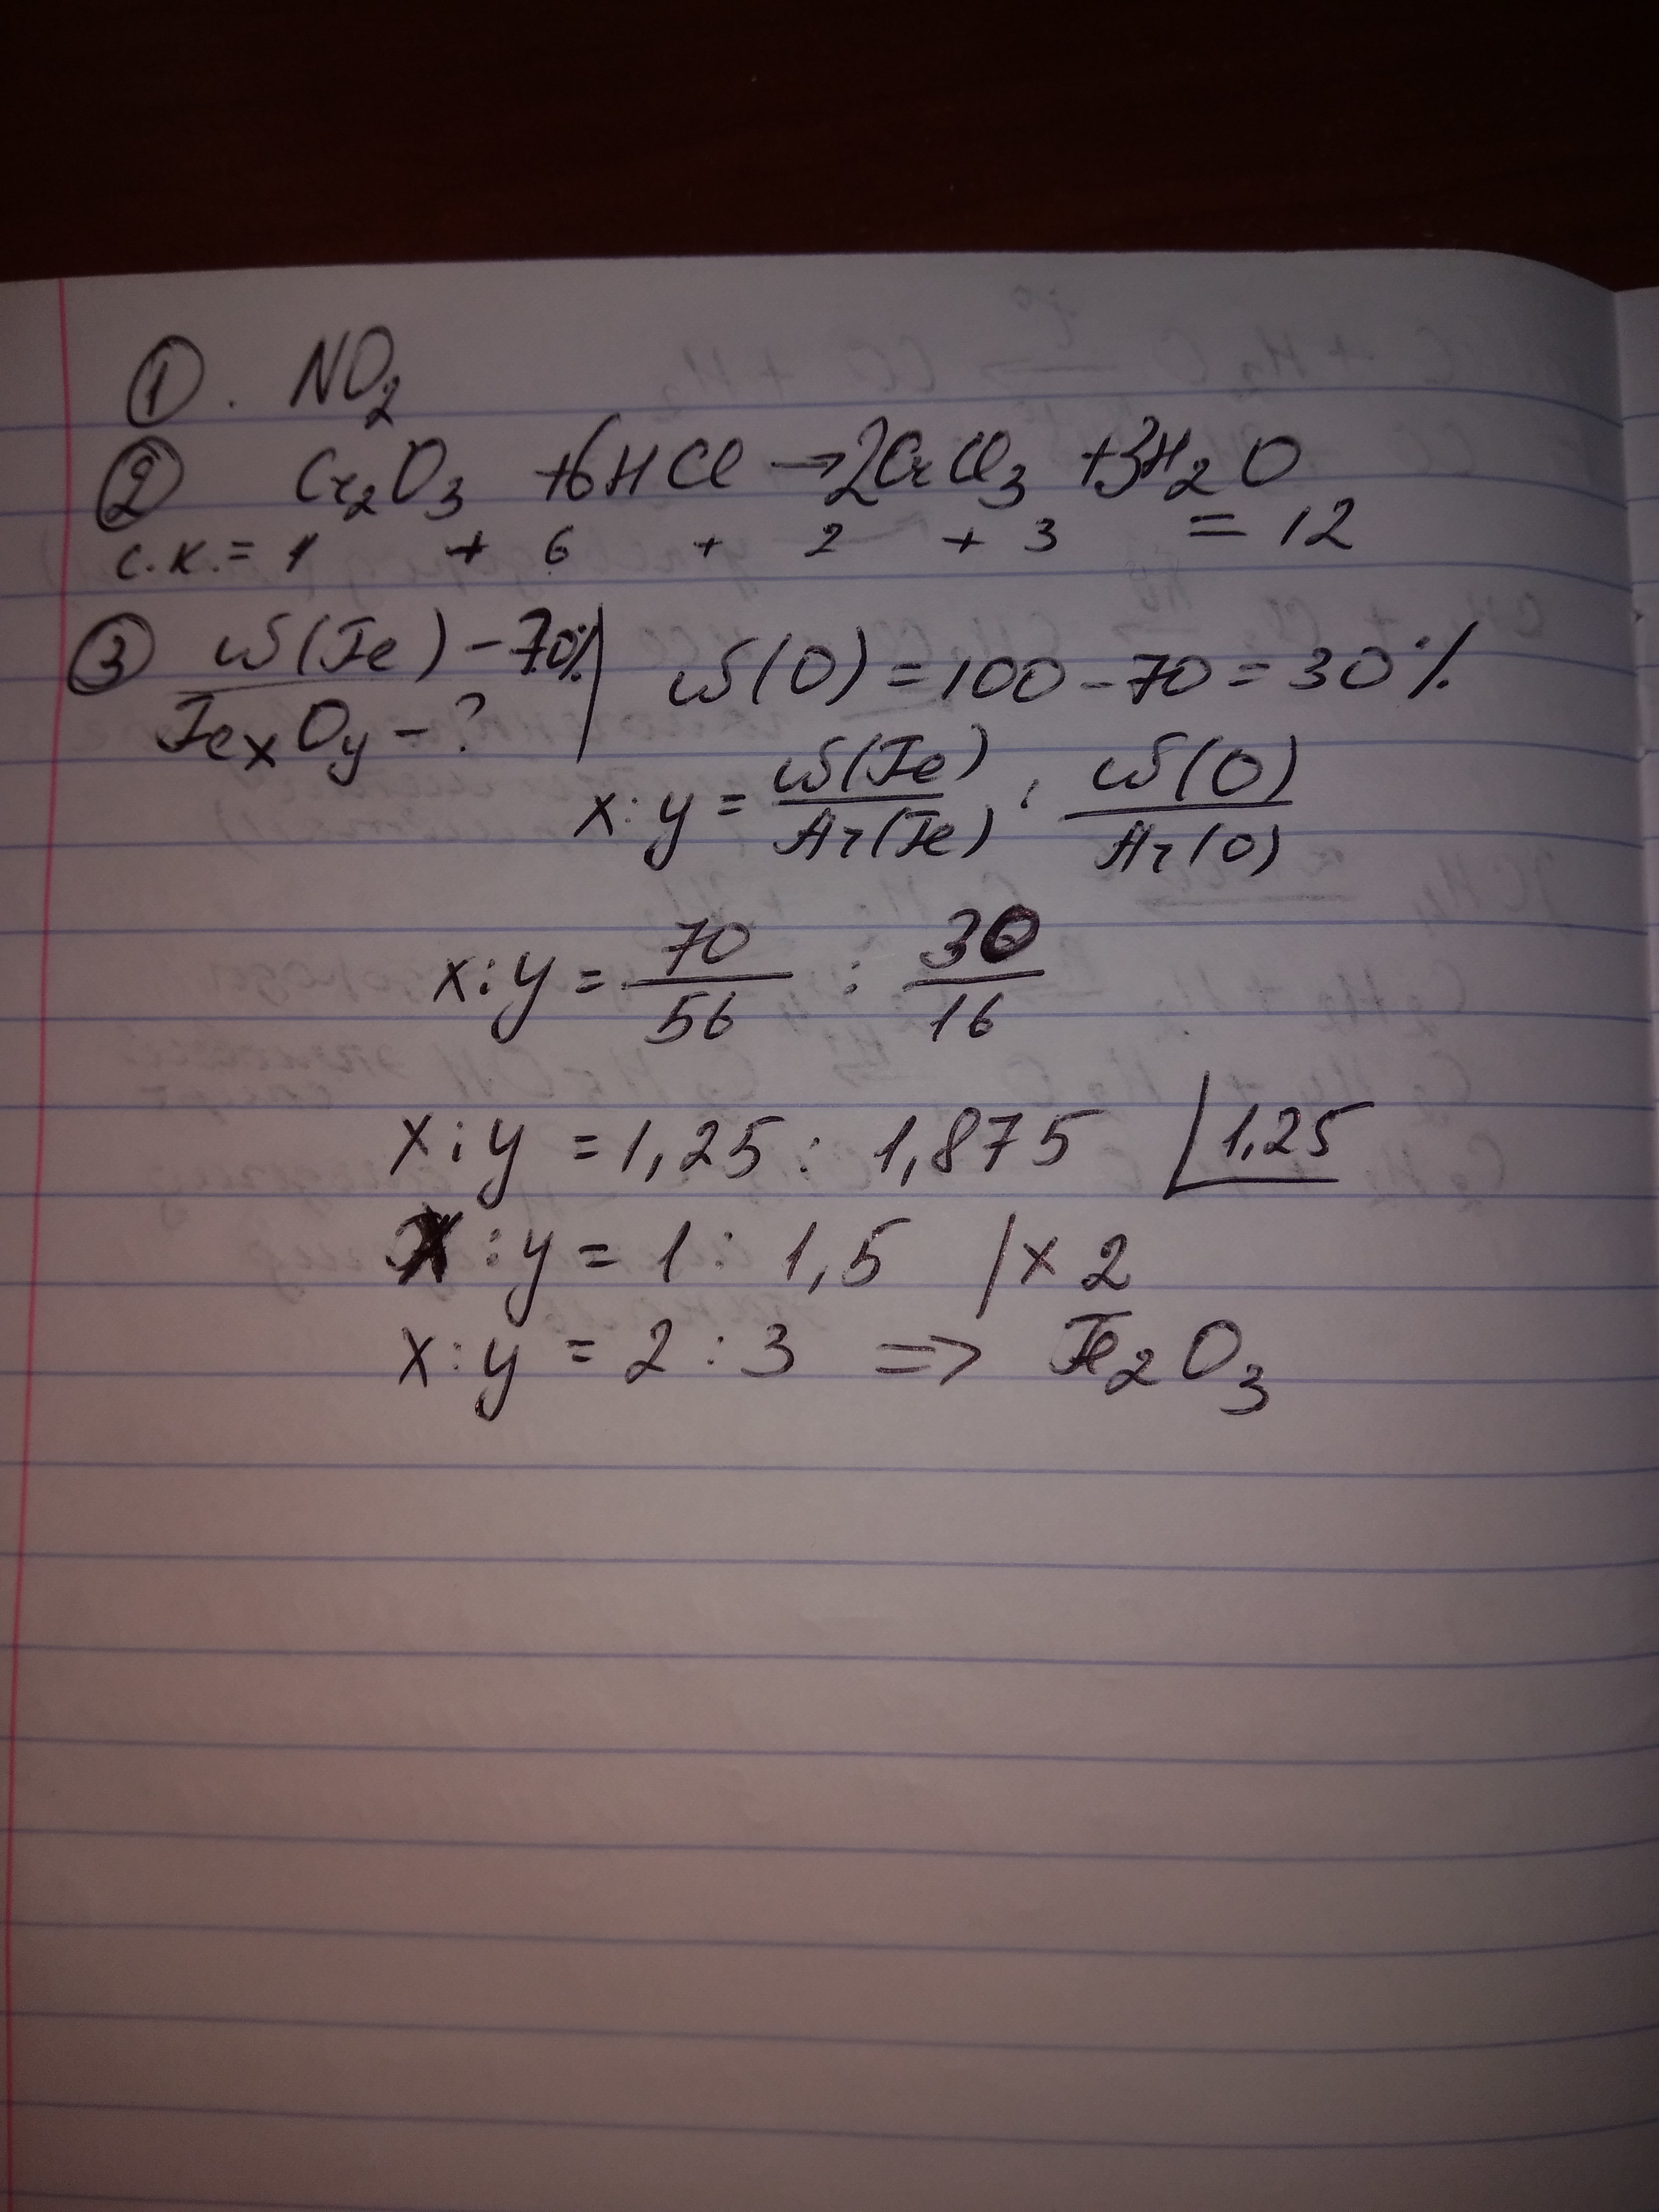 ① . NO₂
② Cr₂O₃ + 6HCl → 2CrCl₃ + 3H₂O
с.к. = 1 + 6 + 2 + 3 = 12
③ ω(Fe) - 70% | ω(O) = 100 - 70 = 30%
FexOy - ?
x : y = ω(Fe)/Ar(Fe) : ω(O)/Ar(O)
x : y = 70/56 : 30/16
x : y = 1,25 : 1,875 | 1,25
x : y = 1 : 1,5 | × 2
x : y = 2 : 3 => Fe₂O₃